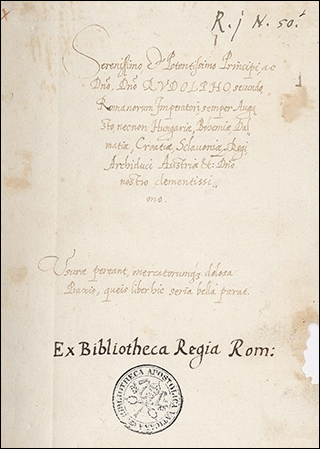 R. j N. 50.
Serenissimo Et Potentissimo Principi, ac
Dño, Dño RVDOLPHO secundo,
Romanorum Imperatori semper Augu
sto, necnon Hungariæ, Bohemiæ, Dal
matiæ, Croatiæ, Sclavoniæ, Regi
Archiduci Austriæ &c: Dño
nostro clementissi
mo.
Usuræ pereant, mercatorumq; dolosa
queis liber hic seria bella parat.
Ex Bibliotheca Regia Rom:
BIBLIOTHECA APOSTOLICA VATICANA